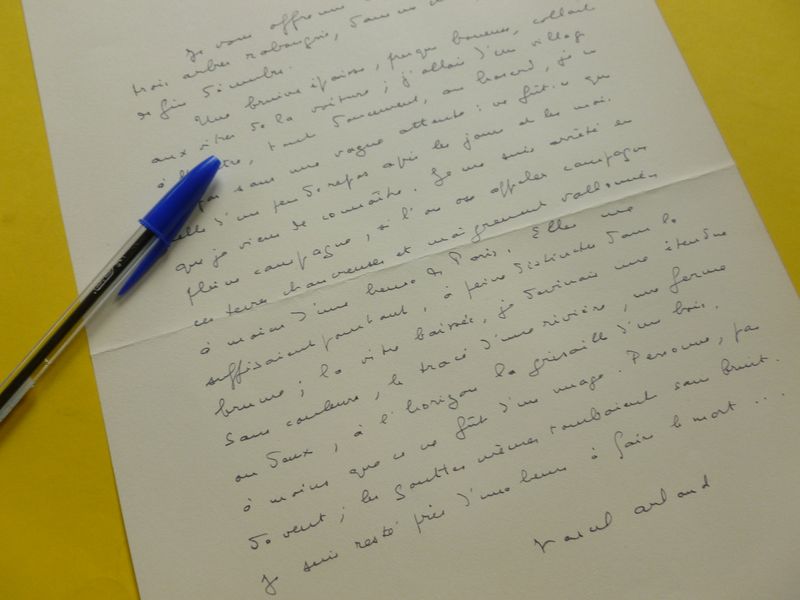 Je vous offre
trois arbres rabougris, dans un
de fin décembre.
Une bruine épaisse, presque boueuse, collait
aux vitres de la voiture ; j'allais d'un village
à l'autre, tout doucement, au hasard, je ne
sans une vague attente : ne fût-ce que
celle d'un peu de repos après les jours et les mois
que je viens de connaître. Je me suis arrêté en
pleine campagne, si l'on ose appeler campagne
ces terres charneuses et maigrement vallonnées
à moins d'une heure de Paris. Elles me
suffisaient pourtant, à peine distinctes dans la
brume ; la vitre baissée, je devinais une étendue
sans couleur, le tracé d'une rivière, une ferme
ou deux, à l'horizon la grisaille d'un bois,
à moins que ce ne fût d'un nuage. Personne, pas
de vent ; les gouttes mêmes tombaient sans bruit.
Je suis resté près d'une heure à faire le mort ...
Marcel Arland